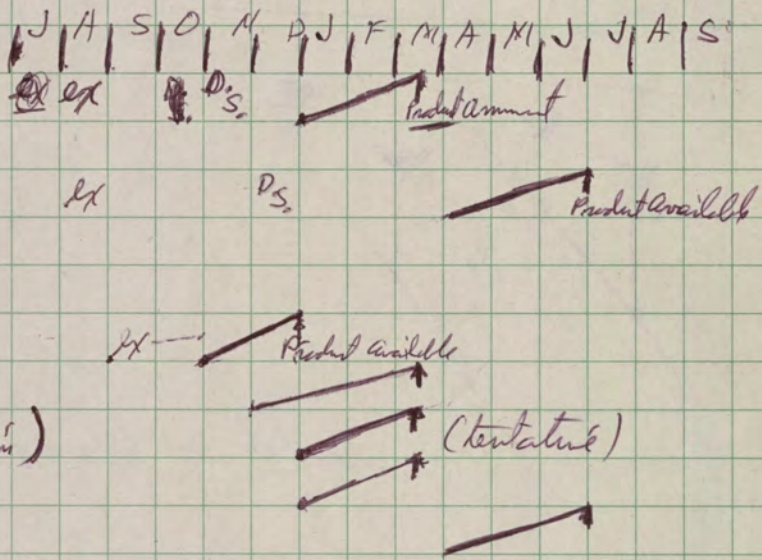 J A S O N D J F M A M J J A S
ex ex D.S.
Product
ex D.S. Product available
ex Product available
(tentative)